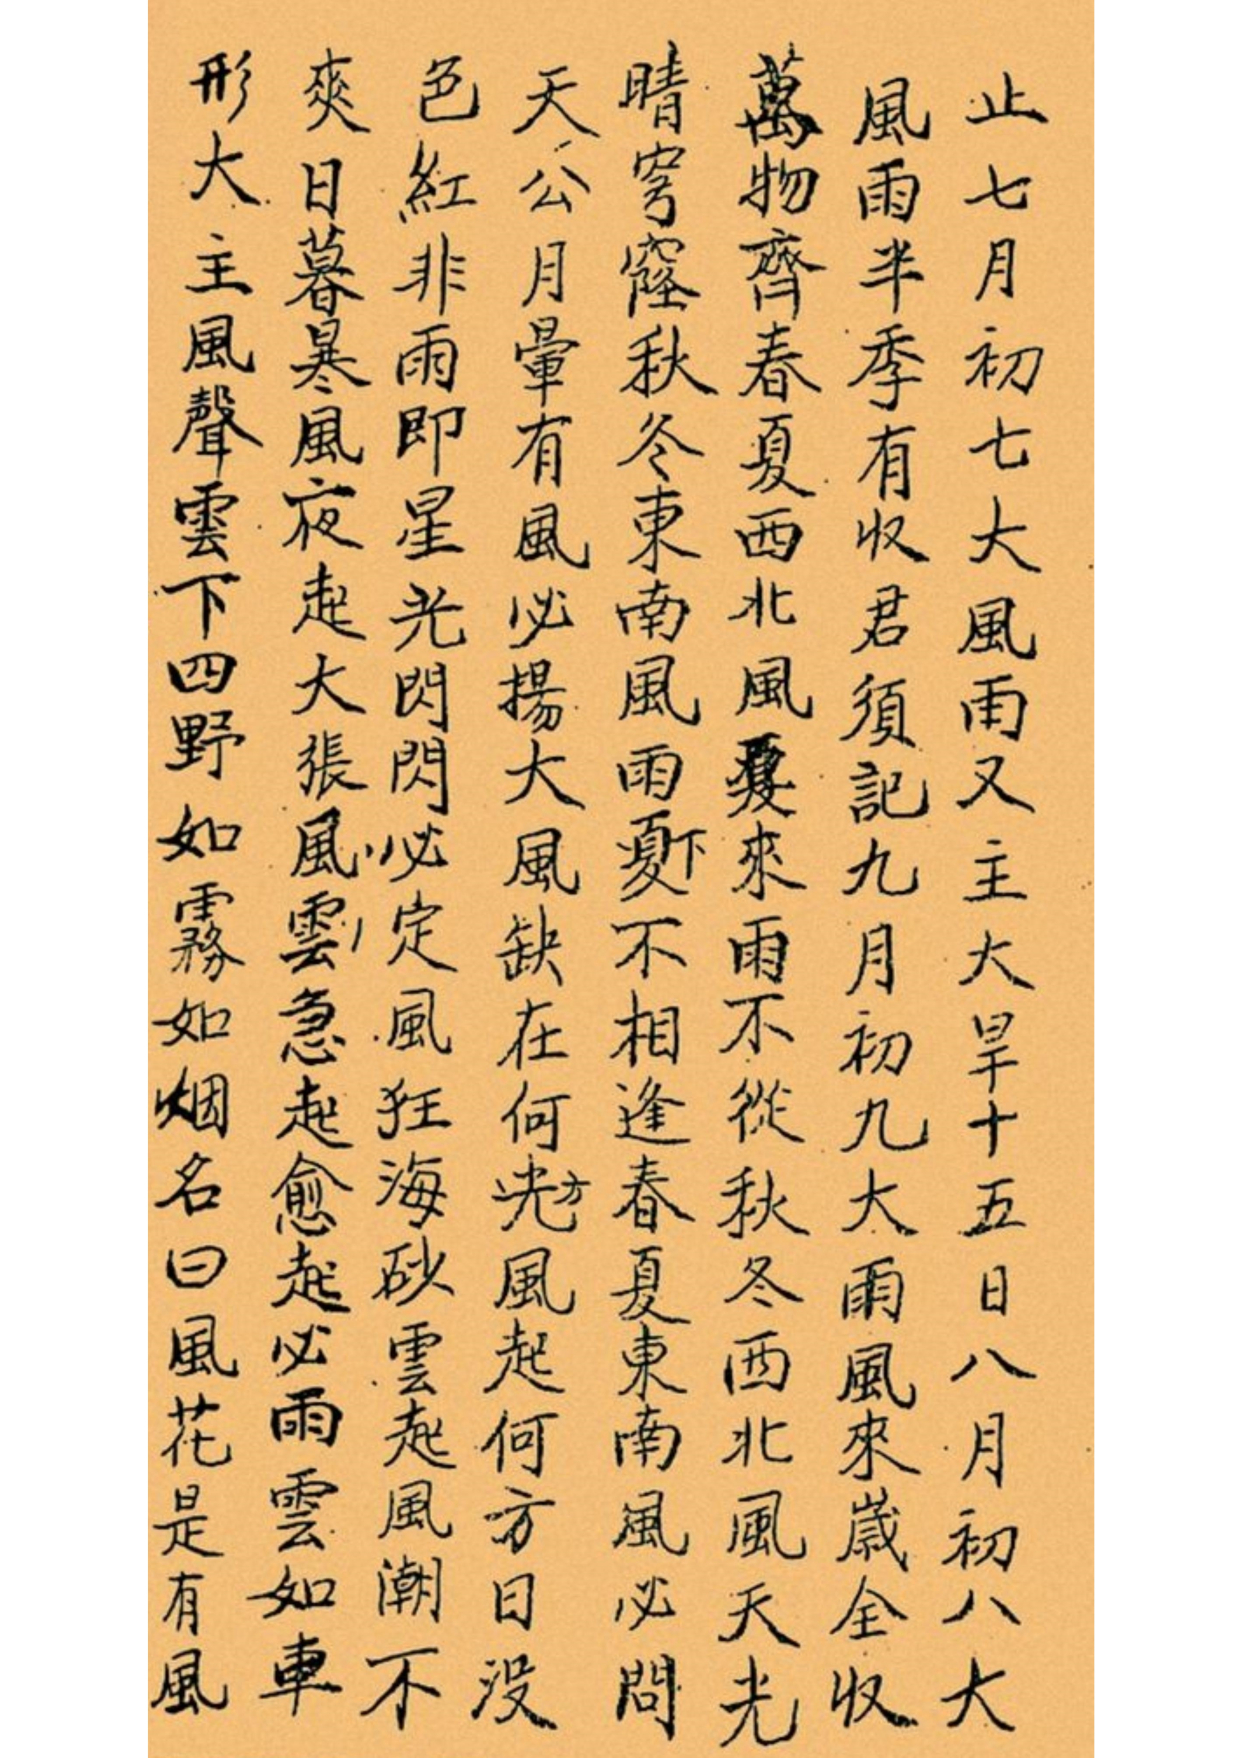 止七月初七大風雨又主大旱十五日八月初八大
風雨半季有收君須記九月初九大雨風來歲全收
萬物齊春夏西北風夏來雨不從秋冬西北風天光
晴穹窿秋冬東南風雨下不相逢春夏東南風必問
天公月暈有風必揚大風缺在何方風起何方日没
色紅非雨即星光閃閃必定風狂海砂雲起風潮不
爽日暮暴風夜起大張風雲急起愈起必雨雲如車
形大主風聲雲下四野如霧如烟名曰風花是有風